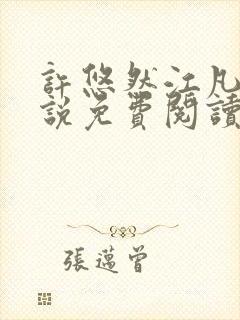 許悠然江凡
說免費閱讀
張邁曾